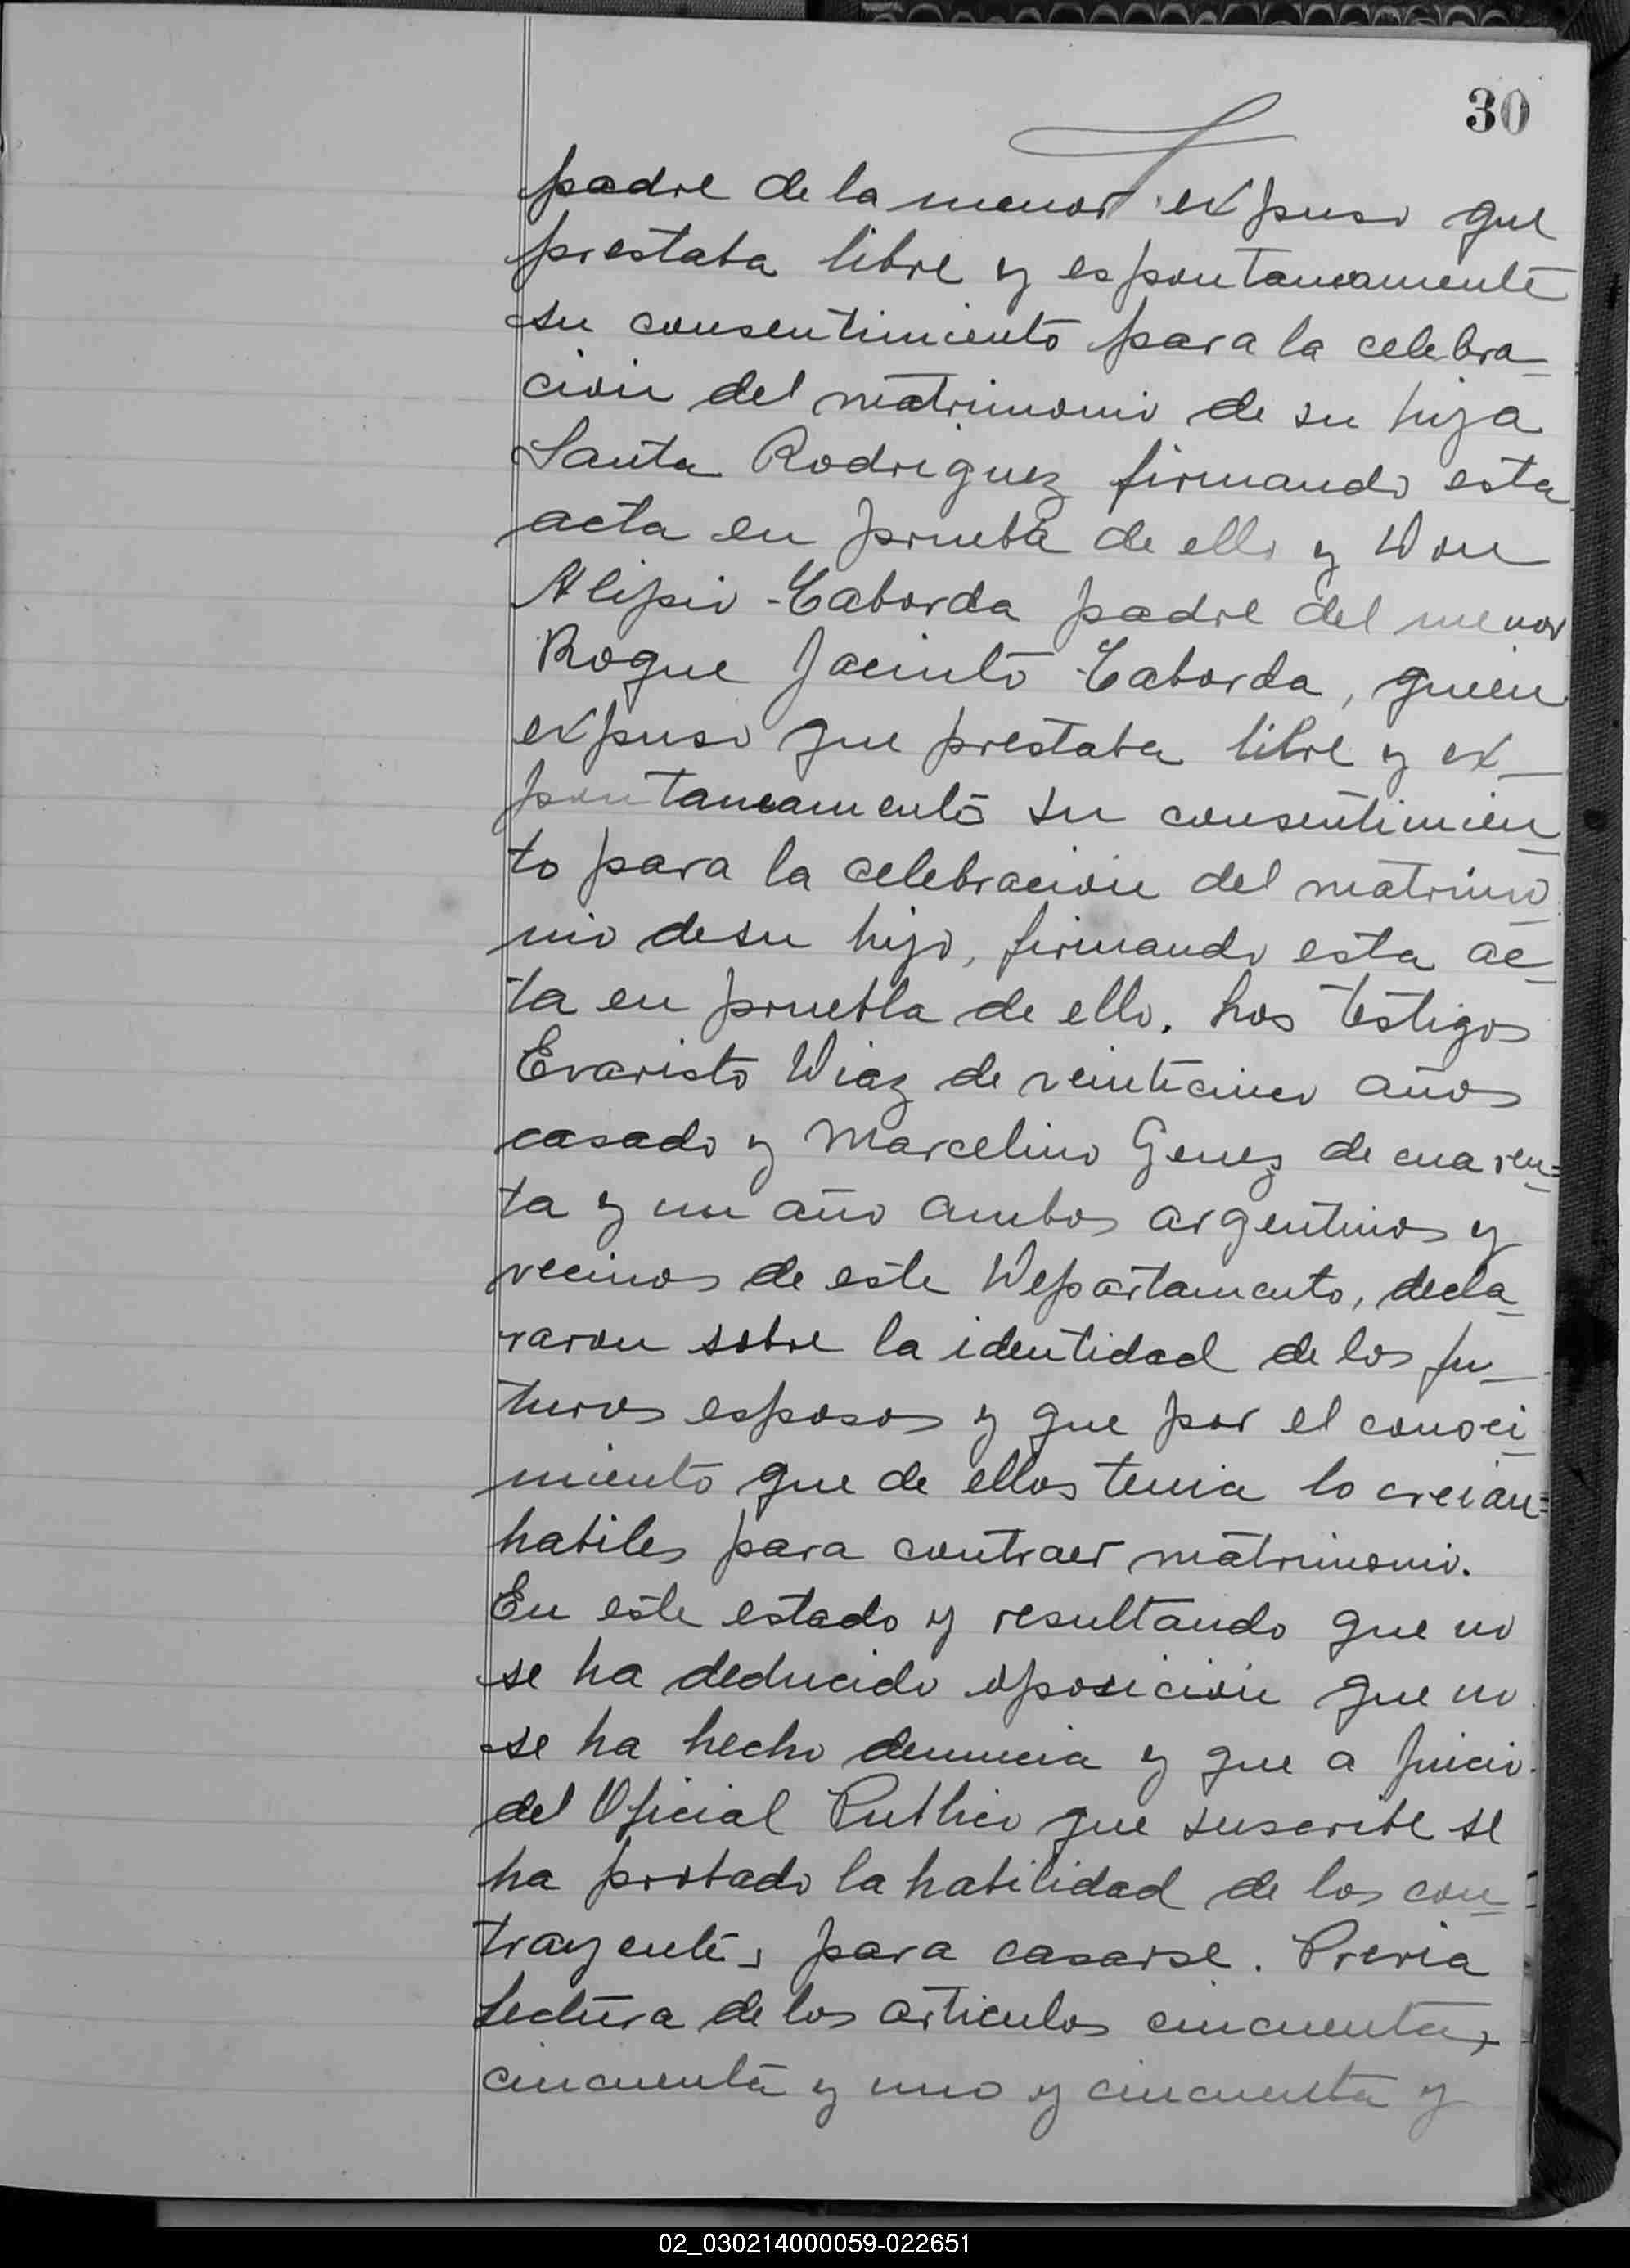 30
padre de la menor expuso que
prestaba libre y espontaneamente
su consentimiento para la celebra-
cion del matrimonio de su hija
Santa Rodriguez firmando esta
acta en prueba de ello y Don
Alipio Taborda padre del menor
Roque Jacinto Taborda, quien
expuso que prestaba libre y ex-
pontaneamente su consentimien-
to para la celebracion del matrimo-
nio de su hijo, firmando esta ac-
ta en prueba de ello. Los testigos
Evaristo Diaz de veinticinco años
casado y Marcelino Genez de cuaren=
ta y un año ambos argentinos y
vecinos de este Departamento, decla-
raron sobre la identidad de los fu-
turos esposos y que por el conoci-
miento que de ellos tenia lo creian=
habiles para contraer matrimonio.
En este estado y resultando que no
se ha deducido oposicion que no
se ha hecho denuncia y que a juicio
del Oficial Publico que suscribe se
ha probado la habilidad de los con-
trayentes para casarse. Previa
Lectura de los articulos cincuenta,
cincuenta y uno y cincuenta y
02_030214000059-022651